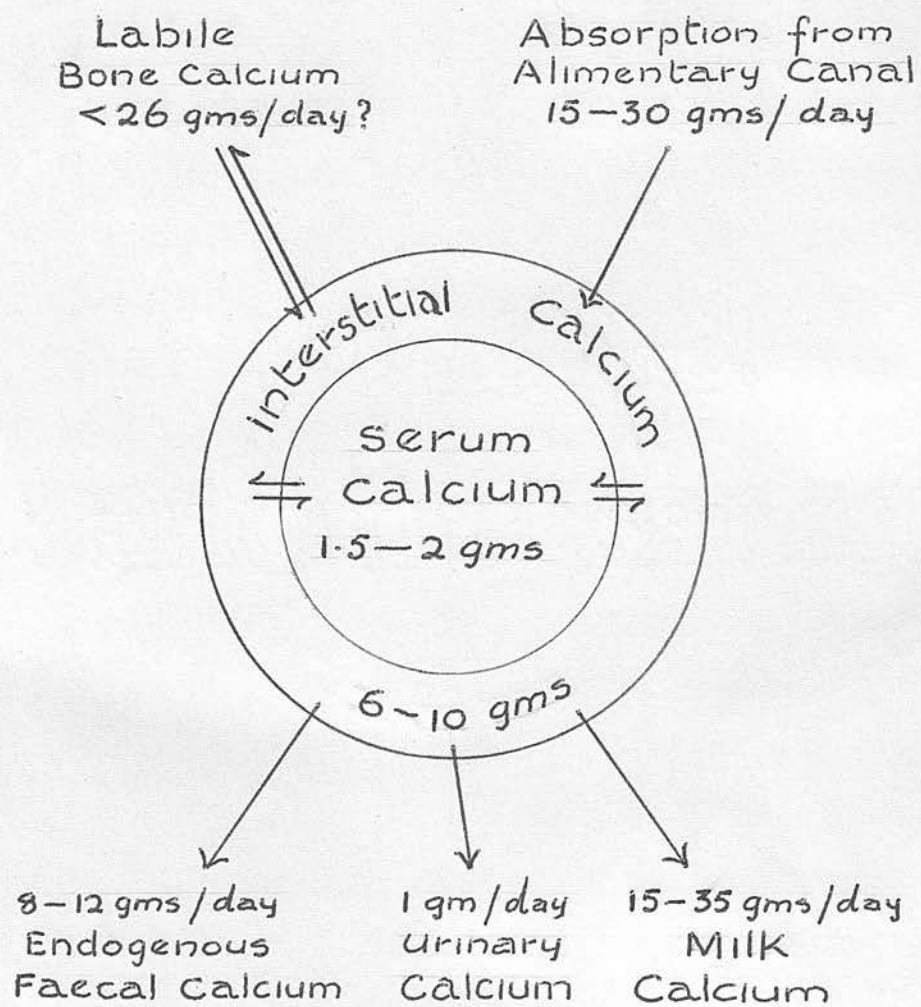 Labile
Bone Calcium
<26 gms/day?
Absorption from
Alimentary Canal
15-30 gms/day
interstitial Calcium
Serum
Calcium
1·5-2 gms
6-10 gms
8-12 gms/day
Endogenous
Faecal Calcium
1 gm/day
Urinary
Calcium
15-35 gms/day
Milk
Calcium